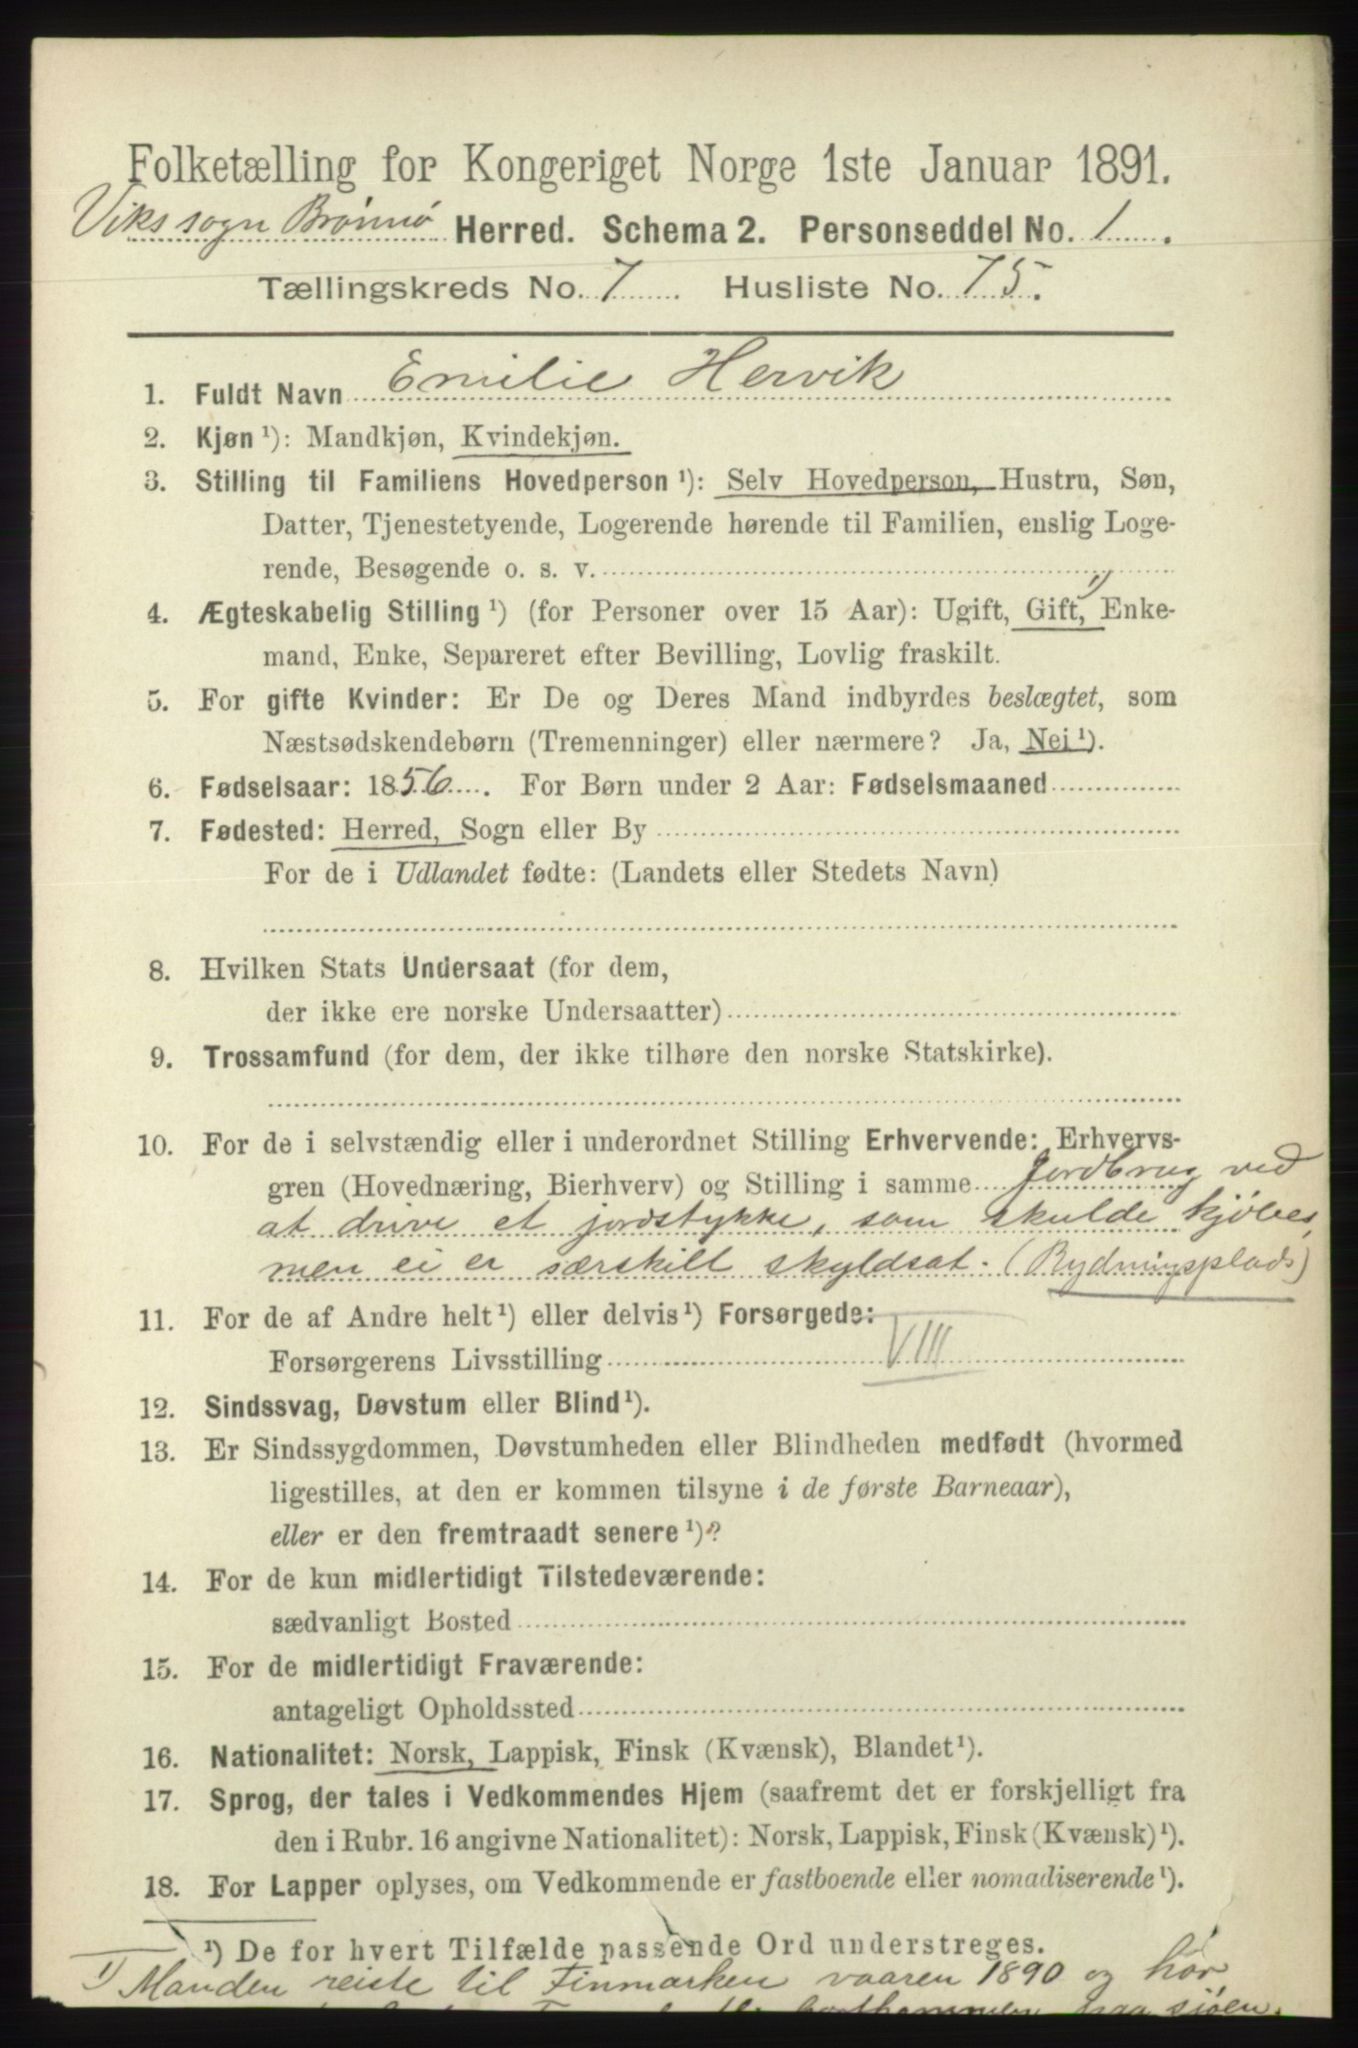 Folketælling for Kongeriget Norge 1ste Januar 1891.
Viks sogn Brønnø Herred. Schema 2. Personseddel No. 1.
Tællingskreds No. 7 Husliste No. 75.
1. Fuldt Navn Emilie Hervik
2. Kjøn ¹): Mandkjøn, Kvindekjøn.
3. Stilling til Familiens Hovedperson ¹): Selv Hovedperson, Hustru, Søn,
Datter, Tjenestetyende, Logerende hørende til Familien, enslig Loge-
rende, Besøgende o. s. v.
4. Ægteskabelig Stilling ¹) (for Personer over 15 Aar): Ugift, Gift, ¹) Enke-
mand, Enke, Separeret efter Bevilling, Lovlig fraskilt.
5. For gifte Kvinder: Er De og Deres Mand indbyrdes beslægtet, som
Næstsødskendebørn (Tremenninger) eller nærmere? Ja, Nei ¹).
6. Fødselsaar: 1856. For Børn under 2 Aar: Fødselsmaaned
7. Fødested: Herred, Sogn eller By
For de i Udlandet fødte: (Landets eller Stedets Navn)
8. Hvilken Stats Undersaat (for dem,
der ikke ere norske Undersaatter)
9. Trossamfund (for dem, der ikke tilhøre den norske Statskirke).
10. For de i selvstændig eller i underordnet Stilling Erhvervende: Erhvervs-
gren (Hovednæring, Bierhverv) og Stilling i samme Jordbrug ved
at drive et jordstykke, som skulde kjöbes,
men ei er særskilt skyldsat. (Rydningsplads)
11. For de af Andre helt ¹) eller delvis ¹) Forsørgede:
Forsørgerens Livsstilling VIII
12. Sindssvag, Døvstum eller Blind ¹).
13. Er Sindssygdommen, Døvstumheden eller Blindheden medfødt (hvormed
ligestilles, at den er kommen tilsyne i de første Barneaar),
eller er den fremtraadt senere ¹)?
14. For de kun midlertidigt Tilstedeværende:
sædvanligt Bosted
15. For de midlertidigt Fraværende:
antageligt Opholdssted
16. Nationalitet: Norsk, Lappisk, Finsk (Kvænsk), Blandet ¹).
17. Sprog, der tales i Vedkommendes Hjem (saafremt det er forskjelligt fra
den i Rubr. 16 angivne Nationalitet): Norsk, Lappisk, Finsk (Kvænsk) ¹).
18. For Lapper oplyses, om Vedkommende er fastboende eller nomadiserende ¹).
¹) De for hvert Tilfælde passende Ord understreges.
¹) Manden reiste til Finmarken vaaren 1890 og hör
bortkommen paa sjöen.